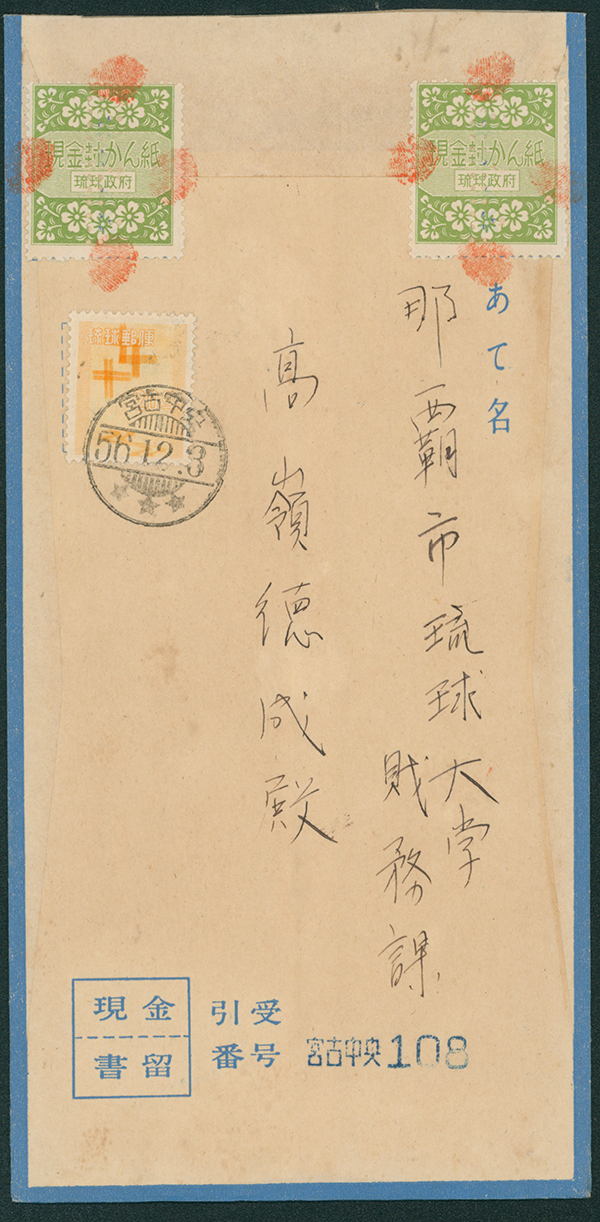 現金封かん紙
琉球政府
現金封かん紙
琉球政府
琉球郵便
宮古中央
56.12.3
あて名
那覇市琉球大学
財務課
高嶺徳成殿
現金
書留
引受
番号
宮古中央108